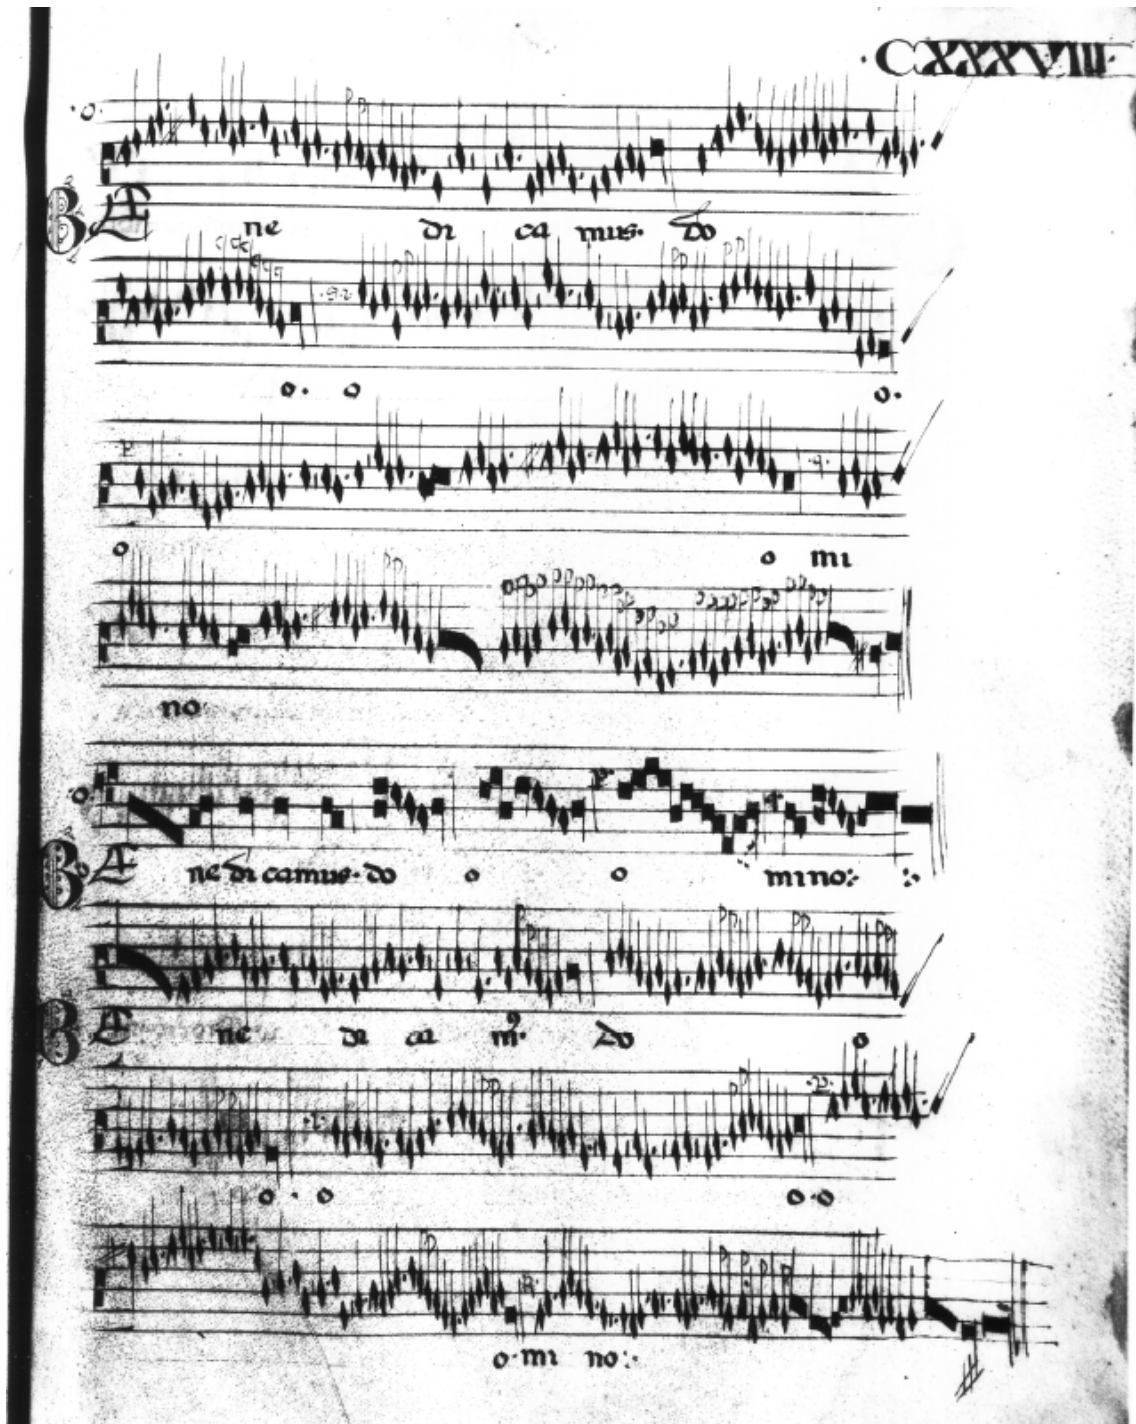 ·CXXXVIII·
BE ne di ca mus· do
o· o o·
o o mi
no·
BE ne di camus· do o o mino:·
BE ne di ca m9· do o
o · o o · o
o· mi no:·